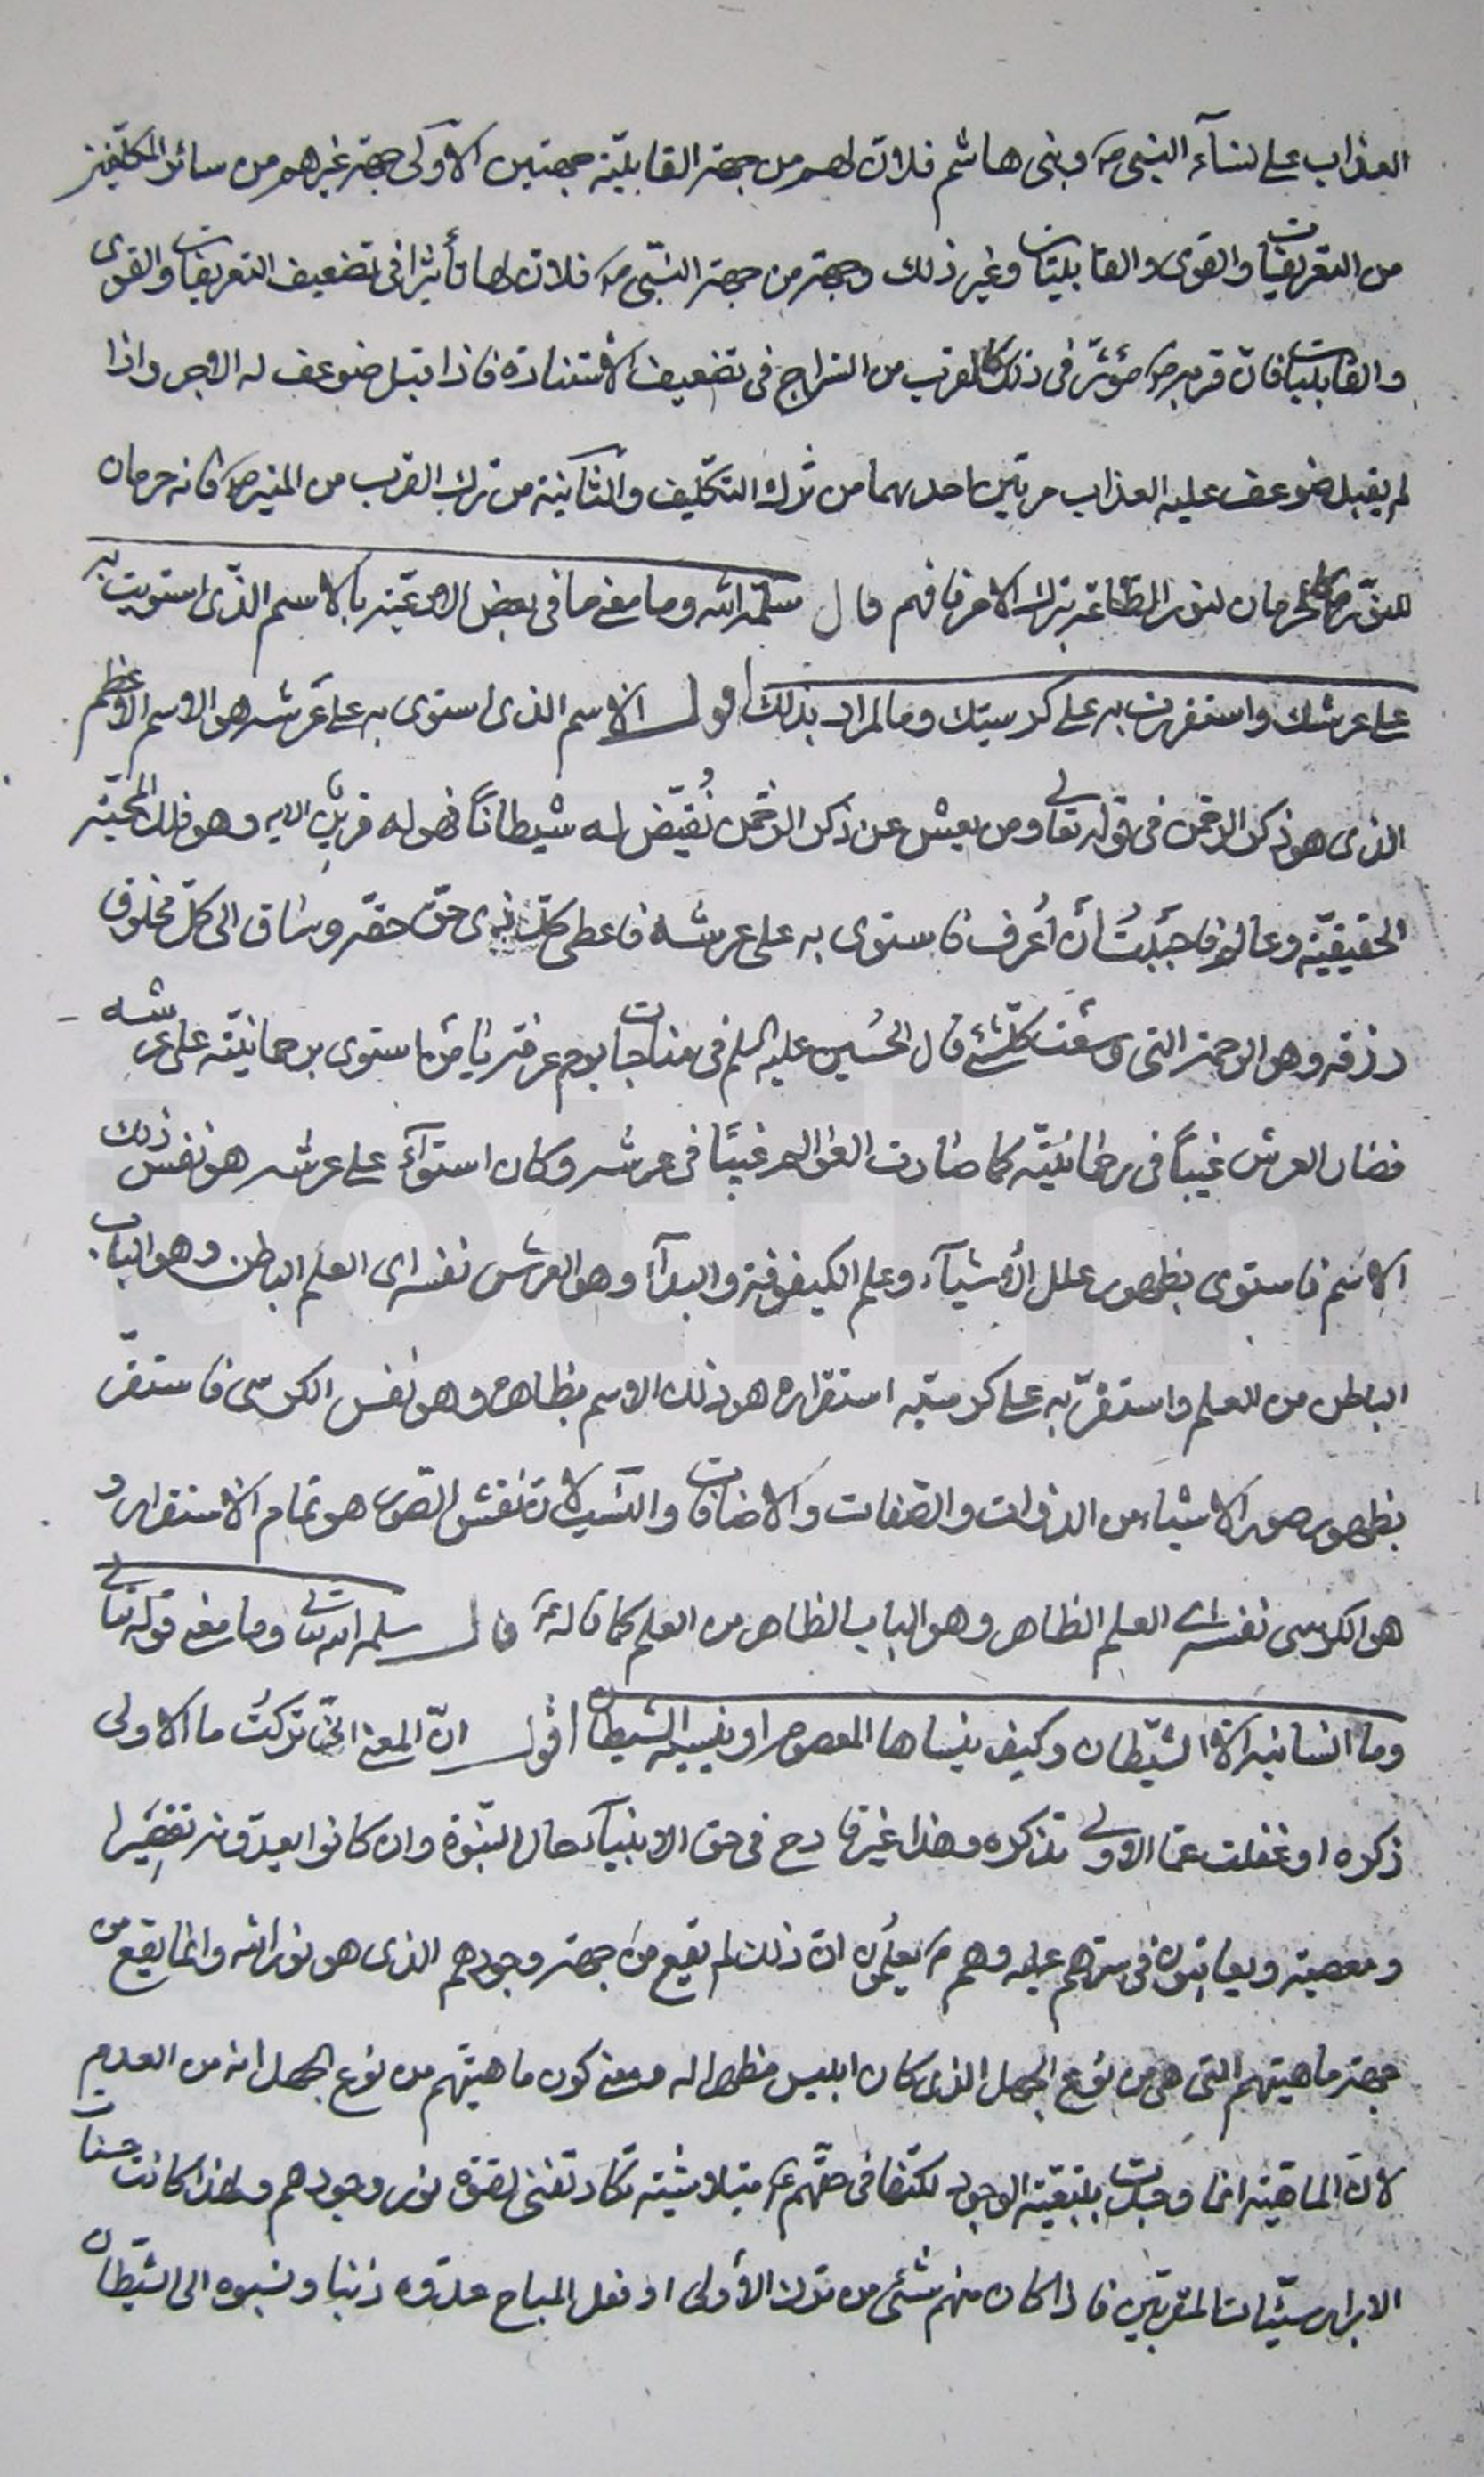 العذاب على نساء النبى ص وبنى هاشم فلان لهم من جهة القابليّة جهتين الاولى جهة غيرهم من سائر المكلّفين
من التعريفات والقوى والقابليّات وغير ذلك وجهة من جهة النبّى ص فلان لها تأثيرا فى تضعيف التعريفات والقوى
والقابليات فان قربه ص مؤثّر فى ذلك كالقرب من السّراج فى تضعيف الاستنارة فاذا قبل ضوعف له الاجر واذا
لم يقبل ضوعف عليه العذاب مرّتين احديهما من ترك التكليف والثّانية من ترك القرب من المنير ص فانه حرمان
للنوّر ص كالحرمان لنور الطّاعة بترك الامر فافهم قال سلّمه الله وما معنى ما فى بعض الادعيّة بالاسم الذّى استويت به
على عرشك واستقررت به على كرسيّك وما المراد بذلك اقول الاسم الذى استوى به على عرشه هو الاسم الاعظم
الذى هو ذكر الرحمن فى قوله تعالى ومن يعش عن ذكر الرّحمن نُقيّض له شيطاناً فهو له قرين الايه وهو فلك المحبّة
الحقيقيّة وعالم فاحببتُ أن اُعرف فاستوى به على عرشه فاعطى كلّ ذى حقّ حقّه وساق الى كلّ مخلوق
رزقه وهو الرحمة التى وسعت كلّ شئ قال الحُسين عليه السلم فى مناجات يوم عرفة يا من استوى برحمانيّته على عرشه
فصار العرش غيباً فى رحمانيّته كما صارت العوالم غيبًا فى عرشه وكان استوآءً على عرشه هو نفس ذلك
الاسم فاستوى بظهور علل الأشيآء وعلم الكيفوفة والبدآء وهو العرش نفسه اى العلم الباطن وهو الباب
الباطن من العلم واستقرّ به على كرسيّه استقراره هو ذلك الاسم بظاهره وهو نفس الكرسى فاستقرّ
بظهور صور الاشياء من الذوات والصّفات والاضافات والنّسب لان نقش الصّور هو تمام الاستقرار و
هو الكرسى نفسه اى العلم الظاهر وهو الباب الظاهر من العلم كما قاله ع قال سلمه الله تعالى وما معنى قوله تعالى
وما انسانيه الّا الشّيطان وكيف ينساها المعصوم او ينسيه الشيطان اقول انّ المعنى انّى تركتُ ما الاولى
ذكره او غفلت عمّا الاولى تذكره وهذا غير قادح فى حق الانبيآء حال النّبّوة وان كانوا يعدّونه تقصيرا
ومعصية ويعاتبون فى سرّهم عليه وهم ع يعلمُون انّ ذلك لم يقع من جهة وجودهم الذى هو نور الله وانّما يقع من
جهة ماهيتهم التى هى من نوع الجهل الذى كان ابليس مظهرا له ومعنى كون ماهيّتهم من نوع الجهل انه من العدم
لانّ الماهيّة انما وجدت بتبعيّة الوجود لكنّها فى حقّهم ع متلاشية تكاد تفنى لقوّة نور وجودهم ولهذا كانت حسنات
الابرار سيّئات المقربّين فاذا كان منهم شئ من ترك الأولى او فعل المباح عدّوه ذنبا ونسبوه الى الشّيطان